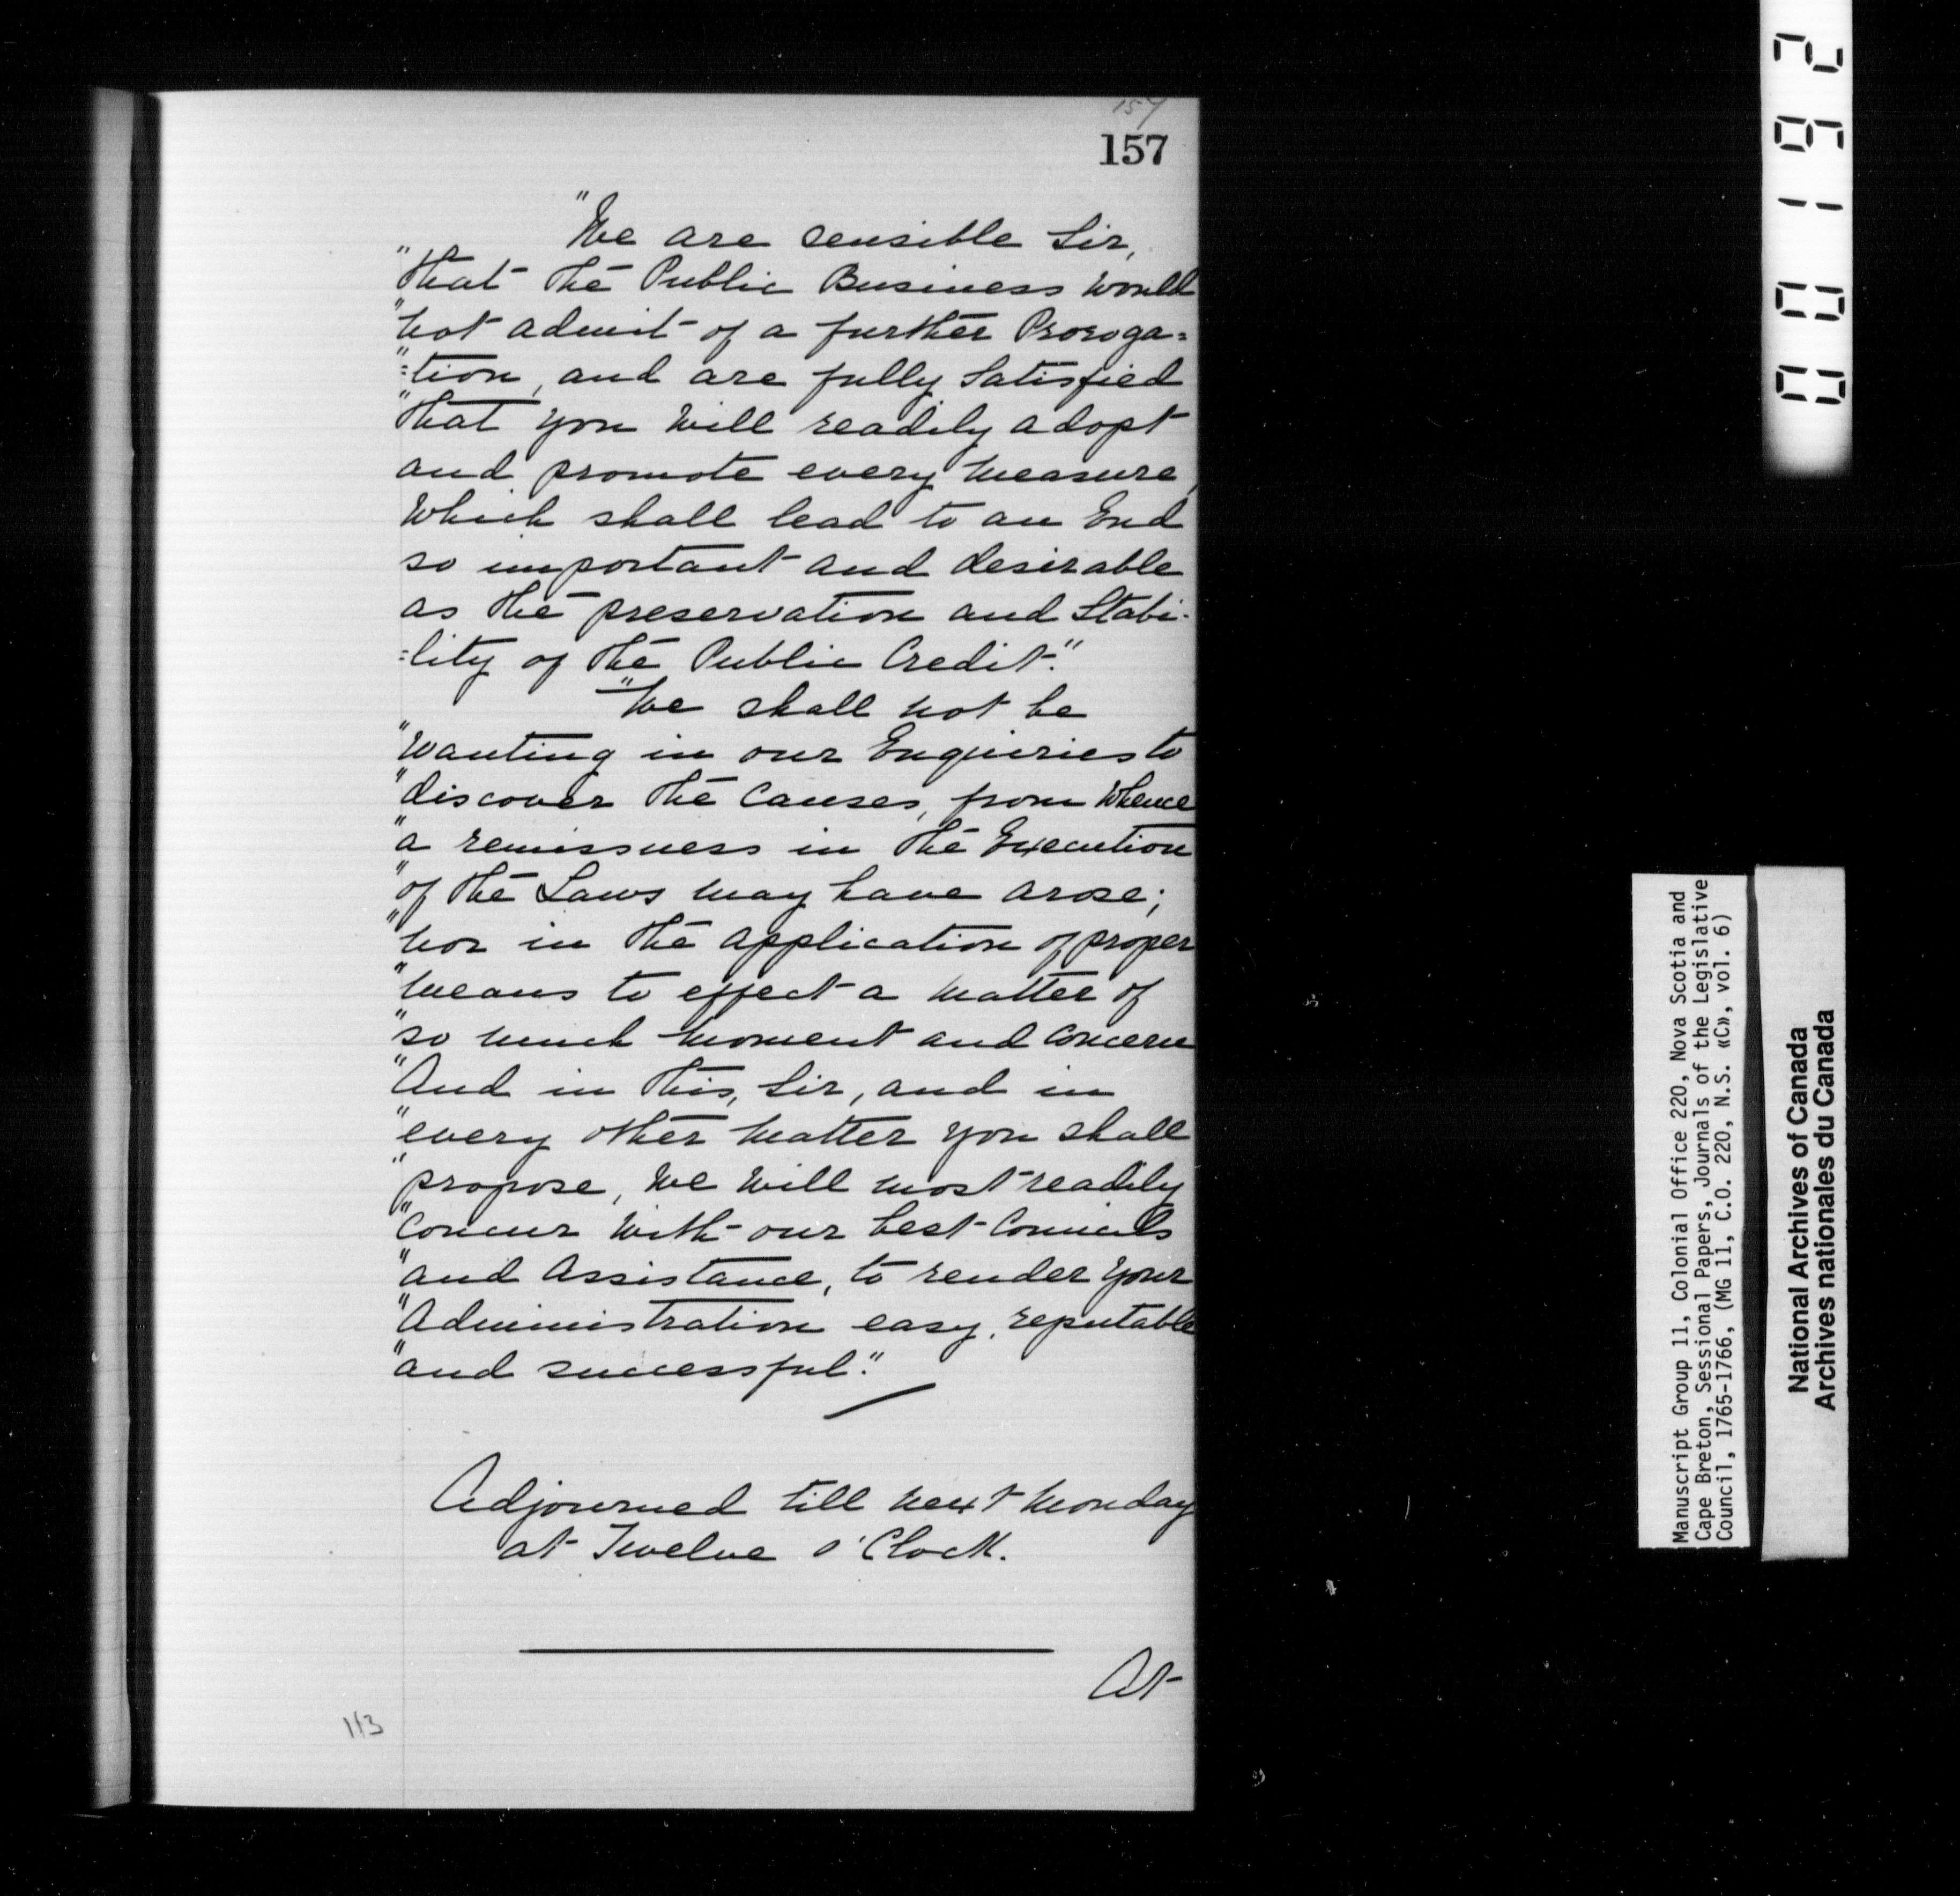 157
157
"We are sensible Sir,
"that the Public Business would
"not admit of a further Proroga=
"=tion, and are fully Satisfied
"that you will readily adopt
and promote every measure,
Which shall lead to an End
so important and desirable
as the preservation and Stabi-
=lity of the Public Credit."
"We shall not be
"wanting in our Enquiries to
"discover the Causes, from Whence
"a remissness in the Execution
"of the Laws may have arose;
"nor in the application of proper
"means to effect a matter of
"so much moment and concern
"And in this, Sir, and in
"every other matter you shall
"propose, We Will most readily
"Concur with our best Councils
"and Assistance, to render your
"Administration easy, reputable
"and successful."
Adjourned till next Monday
at Twelve o'Clock.
At
113
001192
Manuscript Group 11, Colonial Office 220, Nova Scotia and
Cape Breton, Sessional Papers, Journals of the Legislative
Council, 1765-1766, (MG 11, C.O. 220, N.S. «C», vol. 6)
National Archives of Canada
Archives nationales du Canada